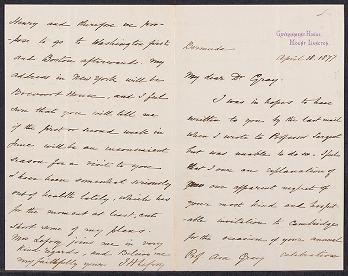 Henry and therefore we pro-
pose to go to Washington first
and Boston afterwards. My
address in New York will be
Brevoort House, and I feel
sure that you will tell me
if the first or second week in
June will be an inconvenient
season for a visit to you
I have been somewhat seriously
out of health lately, which has
for the moment at least, cut
short some of my plans.
Mrs Lefroy joins me in very
kind regards, and Believe me
my faithfully yours J H Lefroy
Government House
Mount Langton
Bermuda
April 18. 1877
My dear Dr Gray.
I was in hopes to have
written to you by the last mail
when I wrote to Professor Sargent
but was unable to do so. I feel
that I owe an explanation of
our apparent neglect of
your most kind and hospit-
able invitation to Cambridge
for the occasion of your annual
Prof Asa Gray celebration